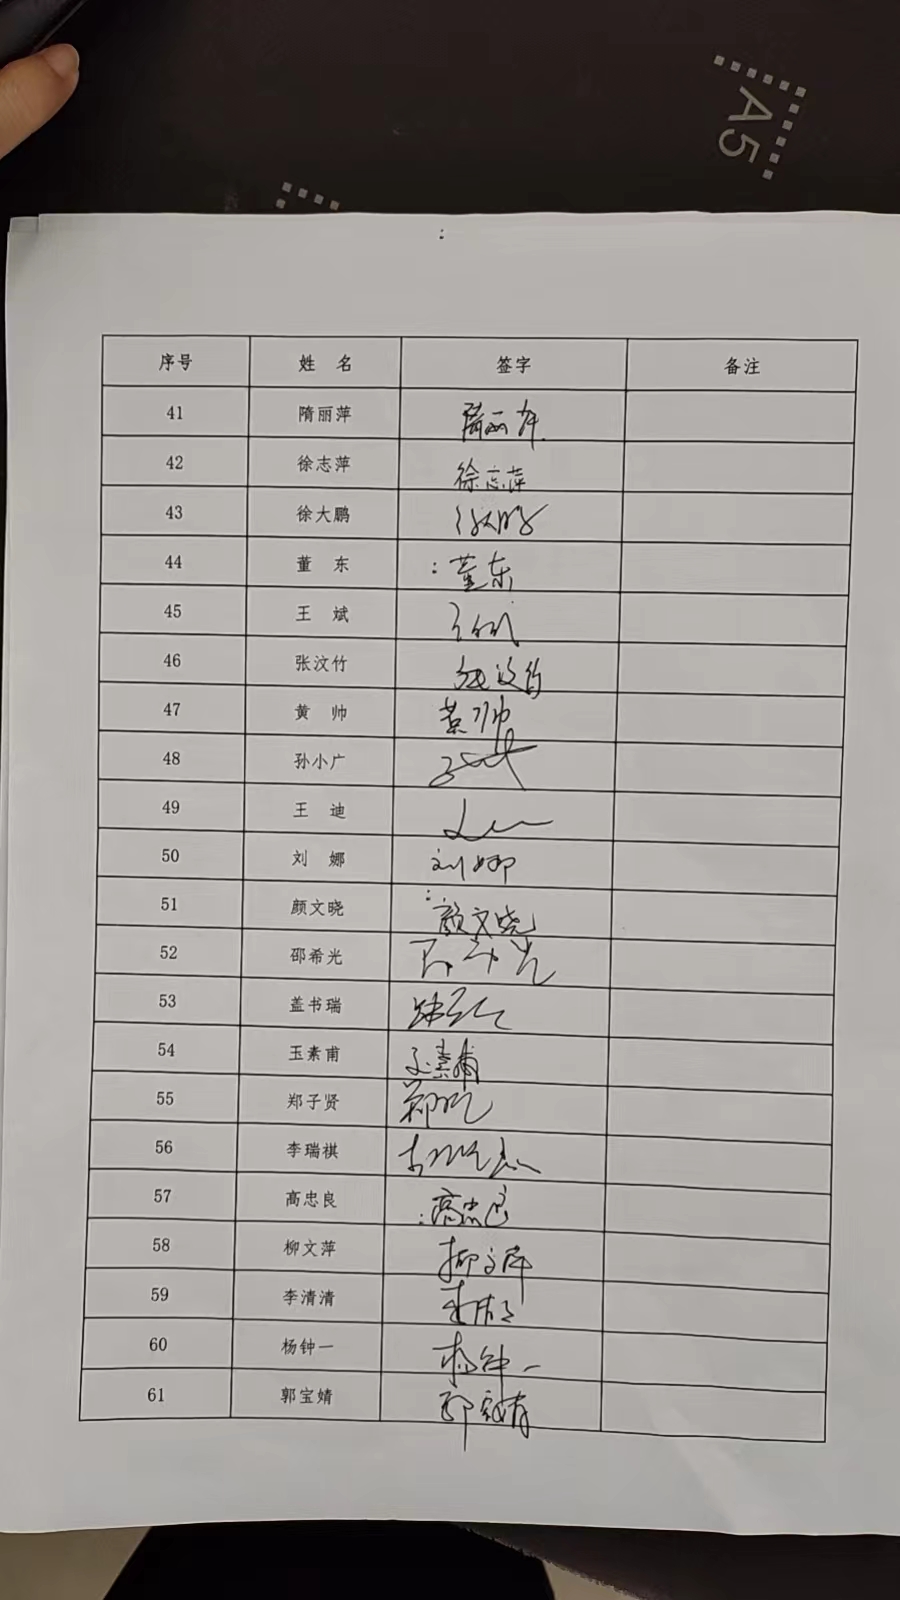 A5
序号 姓 名 签字 备注
41 隋丽萍 隋丽萍
42 徐志萍 徐志萍
43 徐大鹏 徐大鹏
44 董 东 董东
45 王 斌
46 张汶竹 张汶竹
47 黄 帅 黄帅
48 孙小广
49 王 迪
50 刘 娜 刘娜
51 颜文晓 颜文晓
52 邵希光
53 盖书瑞
54 玉素甫 玉素甫
55 郑子贤
56 李瑞祺
57 高忠良 高忠良
58 柳文萍 柳文萍
59 李清清
60 杨钟一 杨钟一
61 郭宝婧 郭宝婧